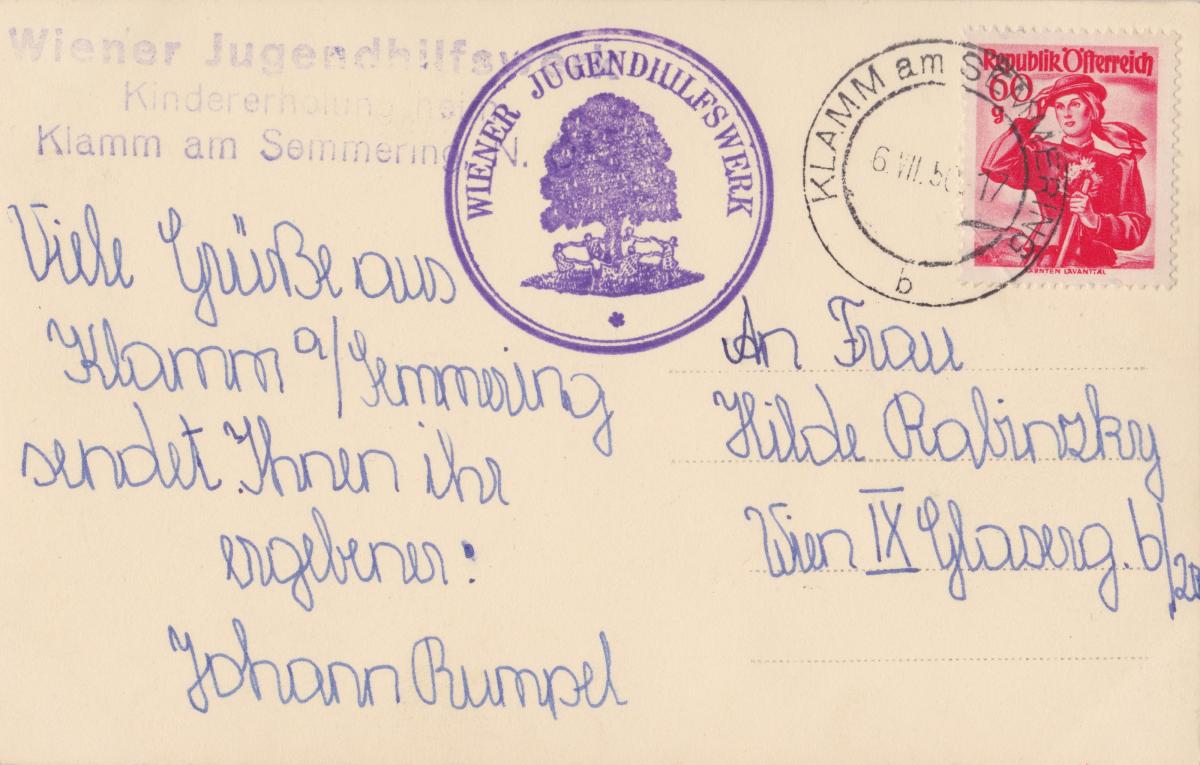 Wiener Jugendhilfswerk
Kindererholung
Klamm am Semmering N.
WIENER JUGENDHILFSWERK
KLAMM am SEMMERING
6.VII.50 17
b
Republik Österreich
60
g
KÄRNTEN LAVANTTAL
Viele Grüße aus
Klamm a/Semmering
sendet Ihnen ihr
ergebener:
Johann Rumpel
An Frau
Hilde Rabinzky
Wien IX Glaserg. 6/20